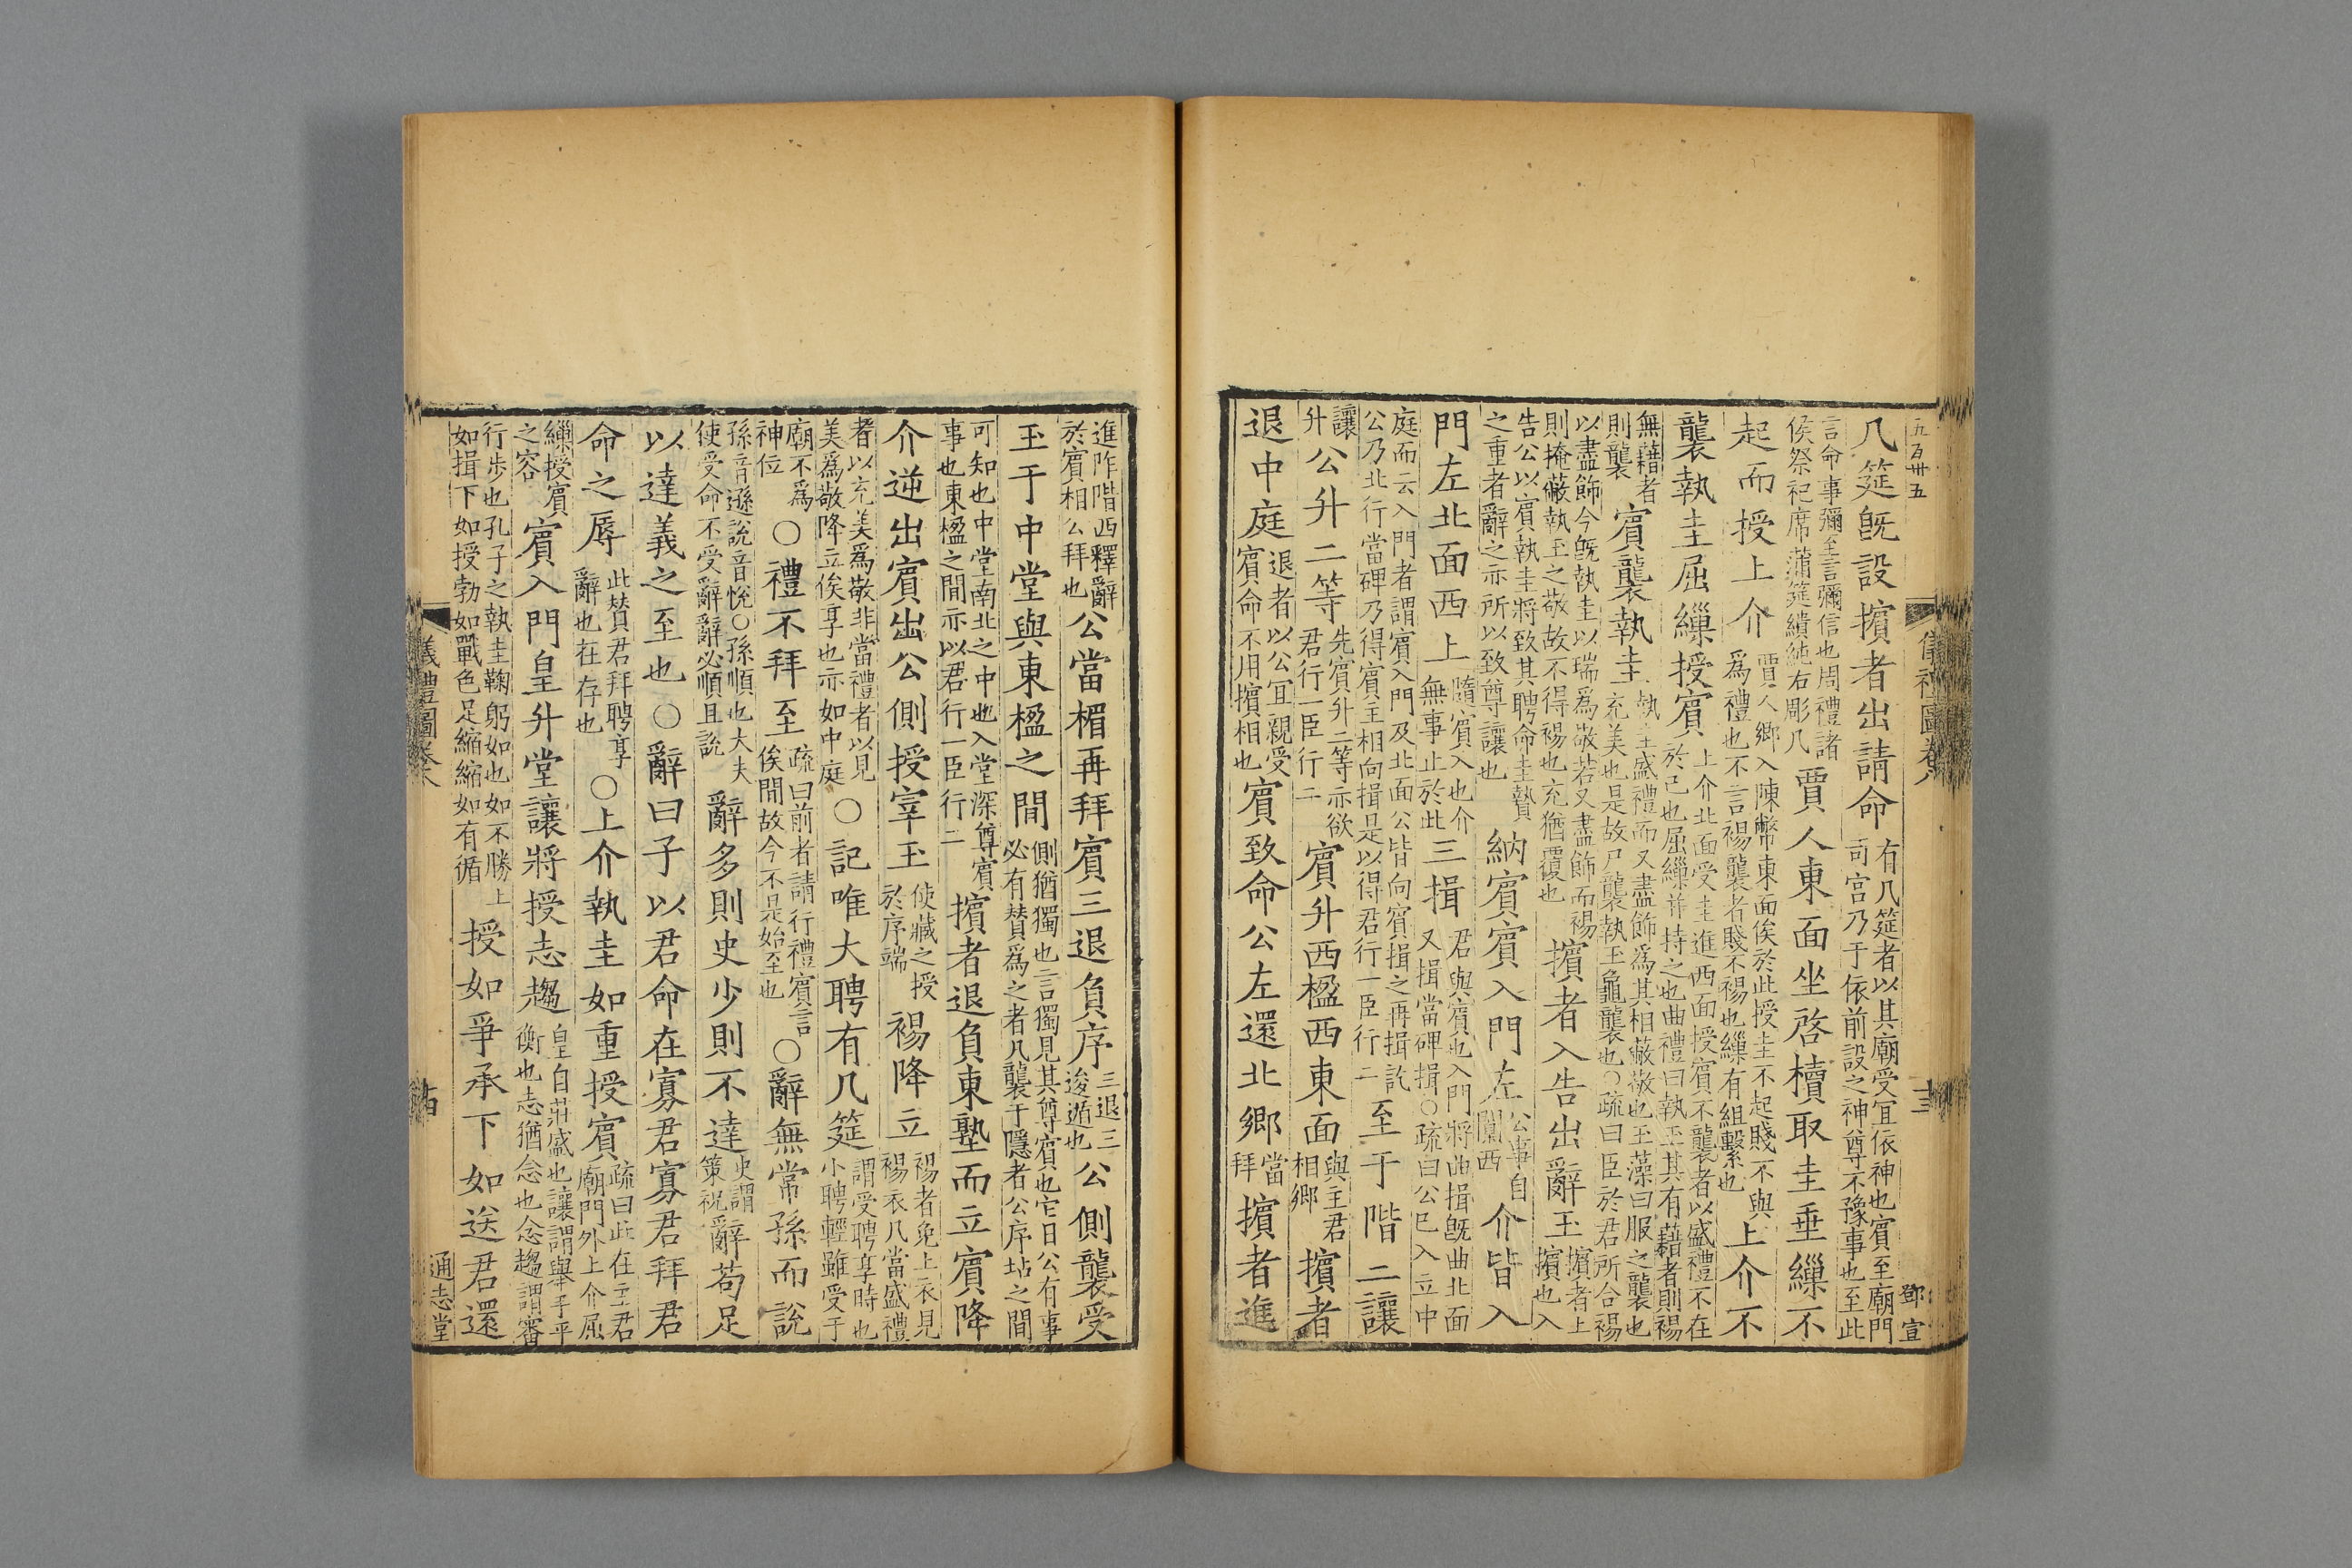 五百卅五
儀禮圖卷八
十三
鄧宣
几筵旣設擯者出請命有几筵者以其廟受宜依神也賓至廟門司宮乃于依前設之神尊不豫事也至此
言命事彌至言彌信也周禮諸侯祭祀席蒲筵繢純右彫几賈人東面坐啓櫝取圭垂繅不
起而授上介賈人鄉入陳幣東面俟於此授圭不起賤不與爲禮也不言裼襲者賤不裼也繅有組繫也上介不
襲執圭屈繅授賓上介北面受圭進西面授賓不襲者以盛禮不在於己也屈繅幷持之也曲禮曰執玉其有藉者則裼
無藉者則襲賓襲執圭執圭盛禮而又盡飾爲其相蔽敬也玉藻曰服之襲也充美也是故尸襲執玉龜襲也○疏曰臣於君所合裼
以盡飾今旣執圭以瑞爲敬若又盡飾而裼則掩蔽執玉之敬故不得裼也充猶覆也擯者入告出辭玉擯者上擯也入
告公以賓執圭將致其聘命圭贄之重者辭之亦所以致尊讓也納賓賓入門左公事自闑西介皆入
門左北面西上隨賓入也介無事止於此三揖君與賓也入門將曲揖旣曲北面又揖當碑揖○疏曰公已入立中
庭而云入門者謂賓入門及北面公皆向賓揖之再揖訖公乃北行當碑乃得賓主相向揖是以得君行一臣行二至于階三讓
讓升公升二等先賓升二等亦欲君行一臣行二賓升西楹西東面與主君相鄉擯者
退中庭退者以公宜親受賓命不用擯相也賓致命公左還北鄉當拜擯者進
進阼階西釋辭於賓相公拜也公當楣再拜賓三退負序三退三逡遁也公側襲受
玉于中堂與東楹之間側猶獨也言獨見其尊賓也它日公有事必有贊爲之者凡襲于隱者公序坫之間
可知也中堂南北之中也入堂深尊賓事也東楹之間亦以君行一臣行二擯者退負東塾而立賓降
介逆出賓出公側授宰玉使藏之授於序端裼降立裼者免上衣見裼衣凡當盛禮
者以充美爲敬非當禮者以見美爲敬降立俟享也亦如中庭○記唯大聘有几筵謂受聘享時也小聘輕雖受于
廟不爲神位○禮不拜至疏曰前者請行禮賓言俟閒故今不是始至也○辭無常孫而說
孫音遜說音悅○孫順也大夫使受命不受辭辭必順且說辭多則史少則不達史謂策祝辭苟足
以達義之至也○辭曰子以君命在寡君寡君拜君
命之辱此贊君拜聘享辭也在存也○上介執圭如重授賓疏曰此在主君廟門外上介屈
繅授賓之容賓入門皇升堂讓將授志趨皇自莊盛也讓謂舉手平衡也志猶念也念趨謂審
行步也孔子之執圭鞠躬如也如不勝上如揖下如授勃如戰色足縮縮如有循授如爭承下如送君還
儀禮圖卷八
十四
通志堂